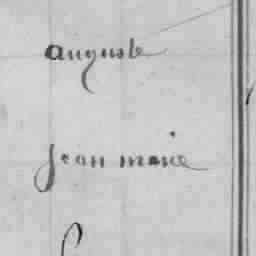 auguste
jean marie